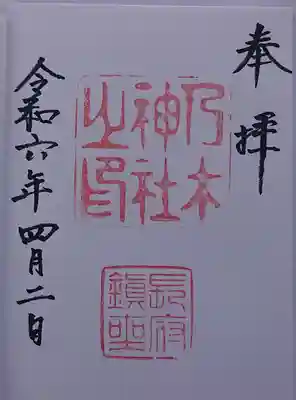 奉拝
乃木
神社
之印
長府
鎭坐
令和六年四月二日